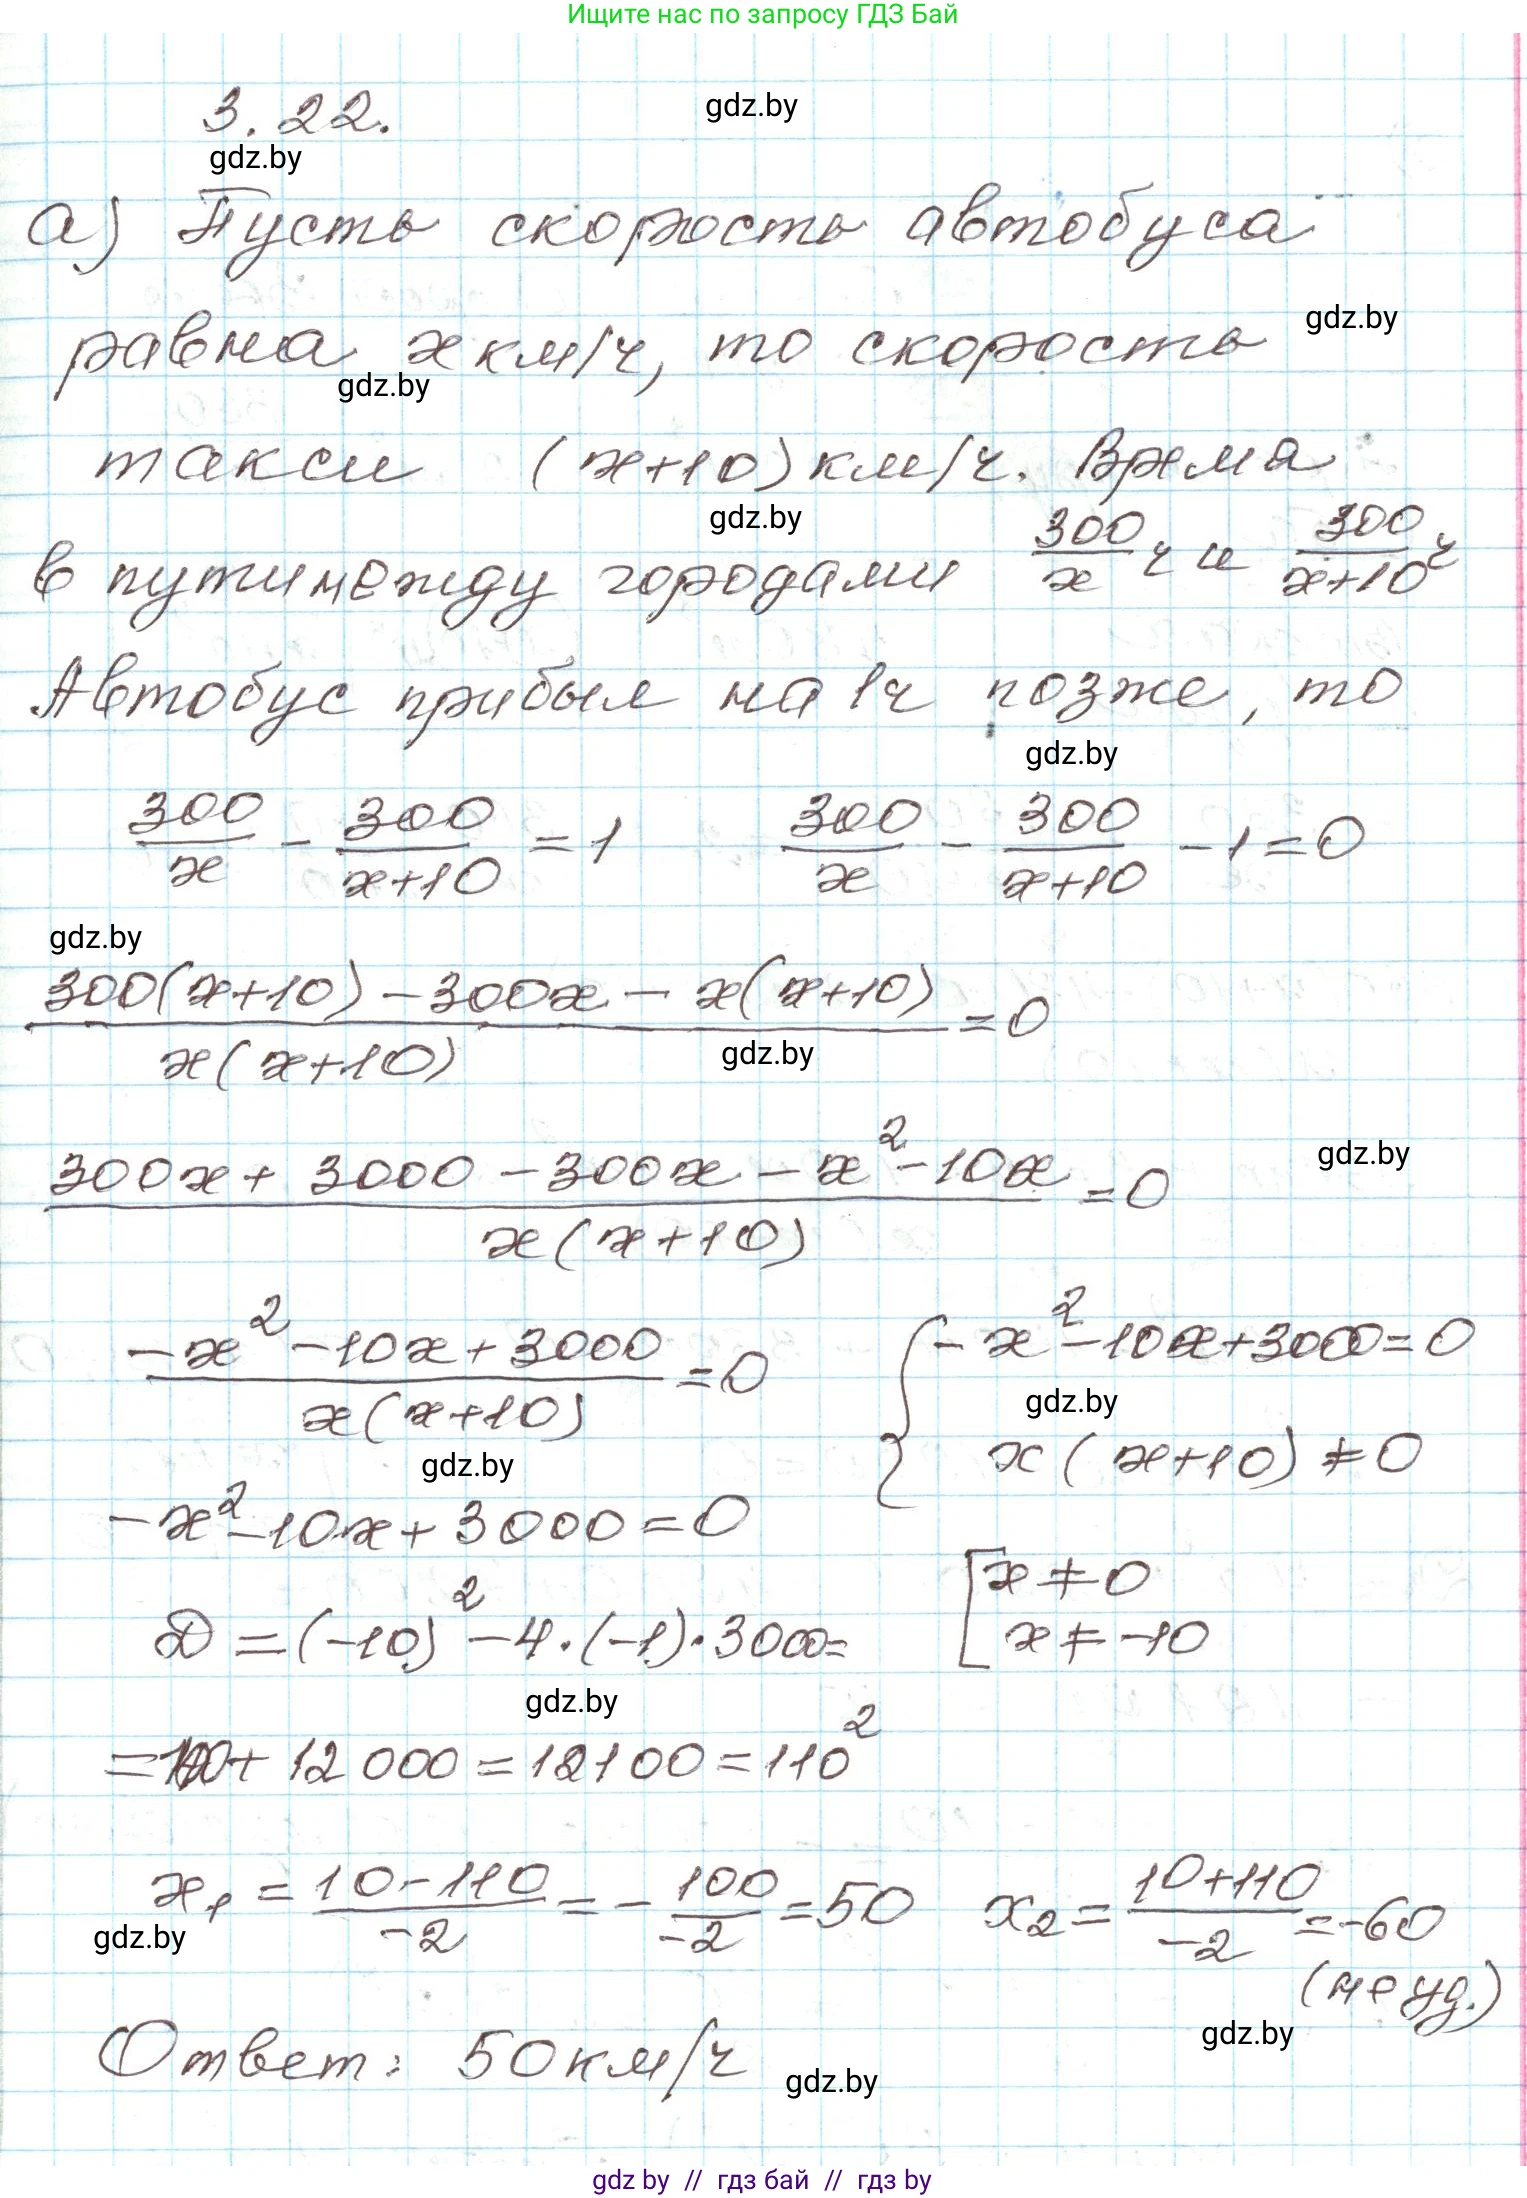 Ищите нас по запросу ГДЗ Бай
3.22.
gdz.by
gdz.by
а) Пусть скорость автобуса
равна x км/ч, то скорость
gdz.by
gdz.by
такси (x+10) км/ч. Время
gdz.by
в пути между городами 300/x ч и 300/(x+10) ч
Автобус прибыл на 1ч позже, то
gdz.by
300/x - 300/(x+10) = 1    300/x - 300/(x+10) - 1 = 0
gdz.by
(300(x+10) - 300x - x(x+10))/(x(x+10)) = 0
gdz.by
(300x + 3000 - 300x - x² - 10x)/(x(x+10)) = 0
gdz.by
(-x² - 10x + 3000)/(x(x+10)) = 0    { -x² - 10x + 3000 = 0
gdz.by
x(x+10) ≠ 0
gdz.by
-x² - 10x + 3000 = 0
[ x ≠ 0
x ≠ -10
D = (-10)² - 4·(-1)·3000 =
gdz.by
= 100 + 12000 = 12100 = 110²
x₁ = (10-110)/(-2) = - 100/(-2) = 50    x₂ = (10+110)/(-2) = -60
gdz.by
(не уд.)
gdz.by
Ответ: 50 км/ч
gdz.by
gdz by // гдз бай // гдз by